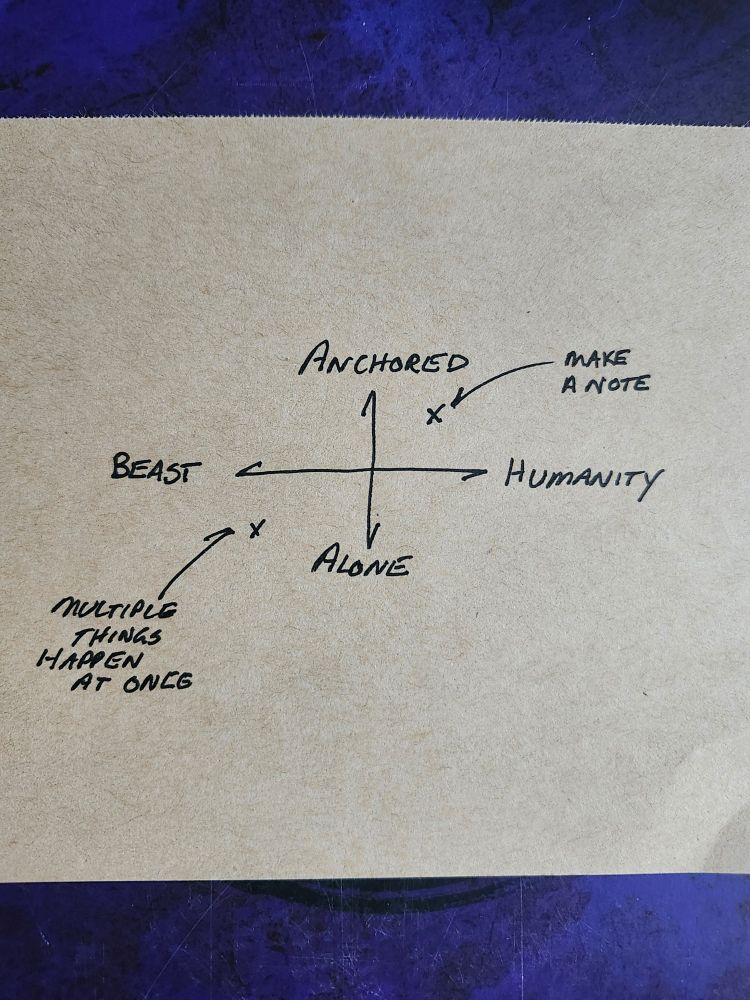 ANCHORED
MAKE
A NOTE
X
BEAST
HUMANITY
X
ALONE
MULTIPLE
THINGS
HAPPEN
AT ONCE